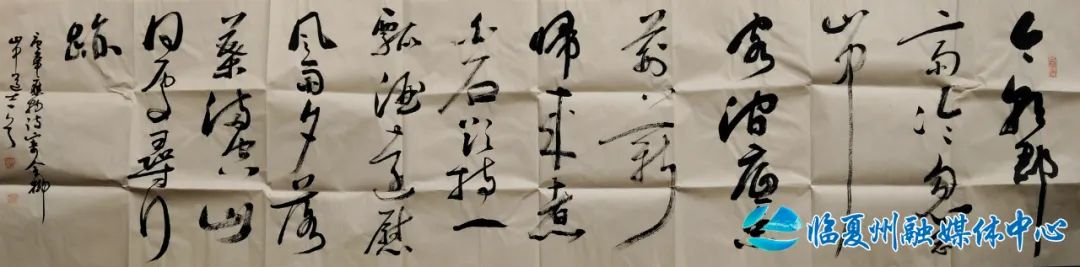 今朝郡
齋冷忽念
山中
客澗底束
荆薪
歸来煮
白石欲持一
瓢酒遠慰
風雨夕落
葉滿空山
何處尋行
跡
韋應物詩寄全椒
山中道士
临夏州融媒体中心